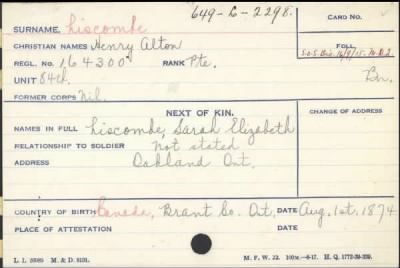 649-L-2298.
CARD NO.
SURNAME Liscombe
CHRISTIAN NAMES Henry Alton
FOLL.
REGL. No. 164300 RANK Pte.
S.O.S. Dis. 16/9/15. M.D.2
UNIT 84th Bn.
FORMER CORPS Nil.
NEXT OF KIN. CHANGE OF ADDRESS
NAMES IN FULL Liscombe, Sarah Elizabeth
RELATIONSHIP TO SOLDIER Not stated
ADDRESS Oakland Ont.
COUNTRY OF BIRTH Canada, Brant Co. Ont. DATE Aug. 1st. 1874
PLACE OF ATTESTATION DATE
L. L. 26089 M. & D. 8191. M. F. W. 22. 100M.-6-17. H. Q. 1772-39-339.